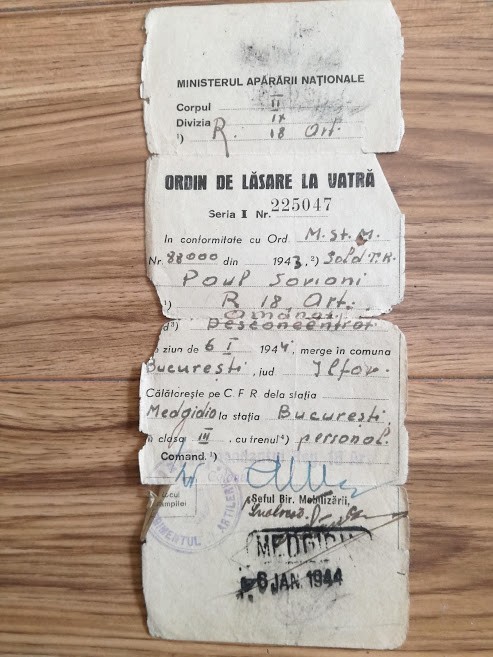 MINISTERUL APĂRĂRII NAȚIONALE
Corpul II
Divizia IX
¹) R. 18 Art.
ORDIN DE LĂSARE LA VATRĂ
Seria I Nr. 225047
In conformitate cu Ord M. St. M.
Nr. 88000 din 1943, ²) Sold T.R.
Poup Sovioni
¹) R 18, Art.
d³) amânat
Desconcentrat
ziua de 6 I 1944, merge în comuna
București, iud Ilfov.
Călătorește pe C.F.R. dela stația
Medgidia la stația București
în clasa III, cu trenul⁴) personal.
Comand. ¹)
Locul
stampilei
Șeful Bir. Mobilizării,
REGIMENTUL ARTILERIE
MEDGIDIA
6 JAN. 1944